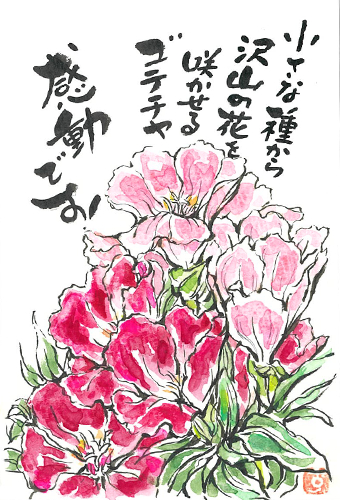 小さな種から
沢山の花を
咲かせる
ゴテチヤ
感動です